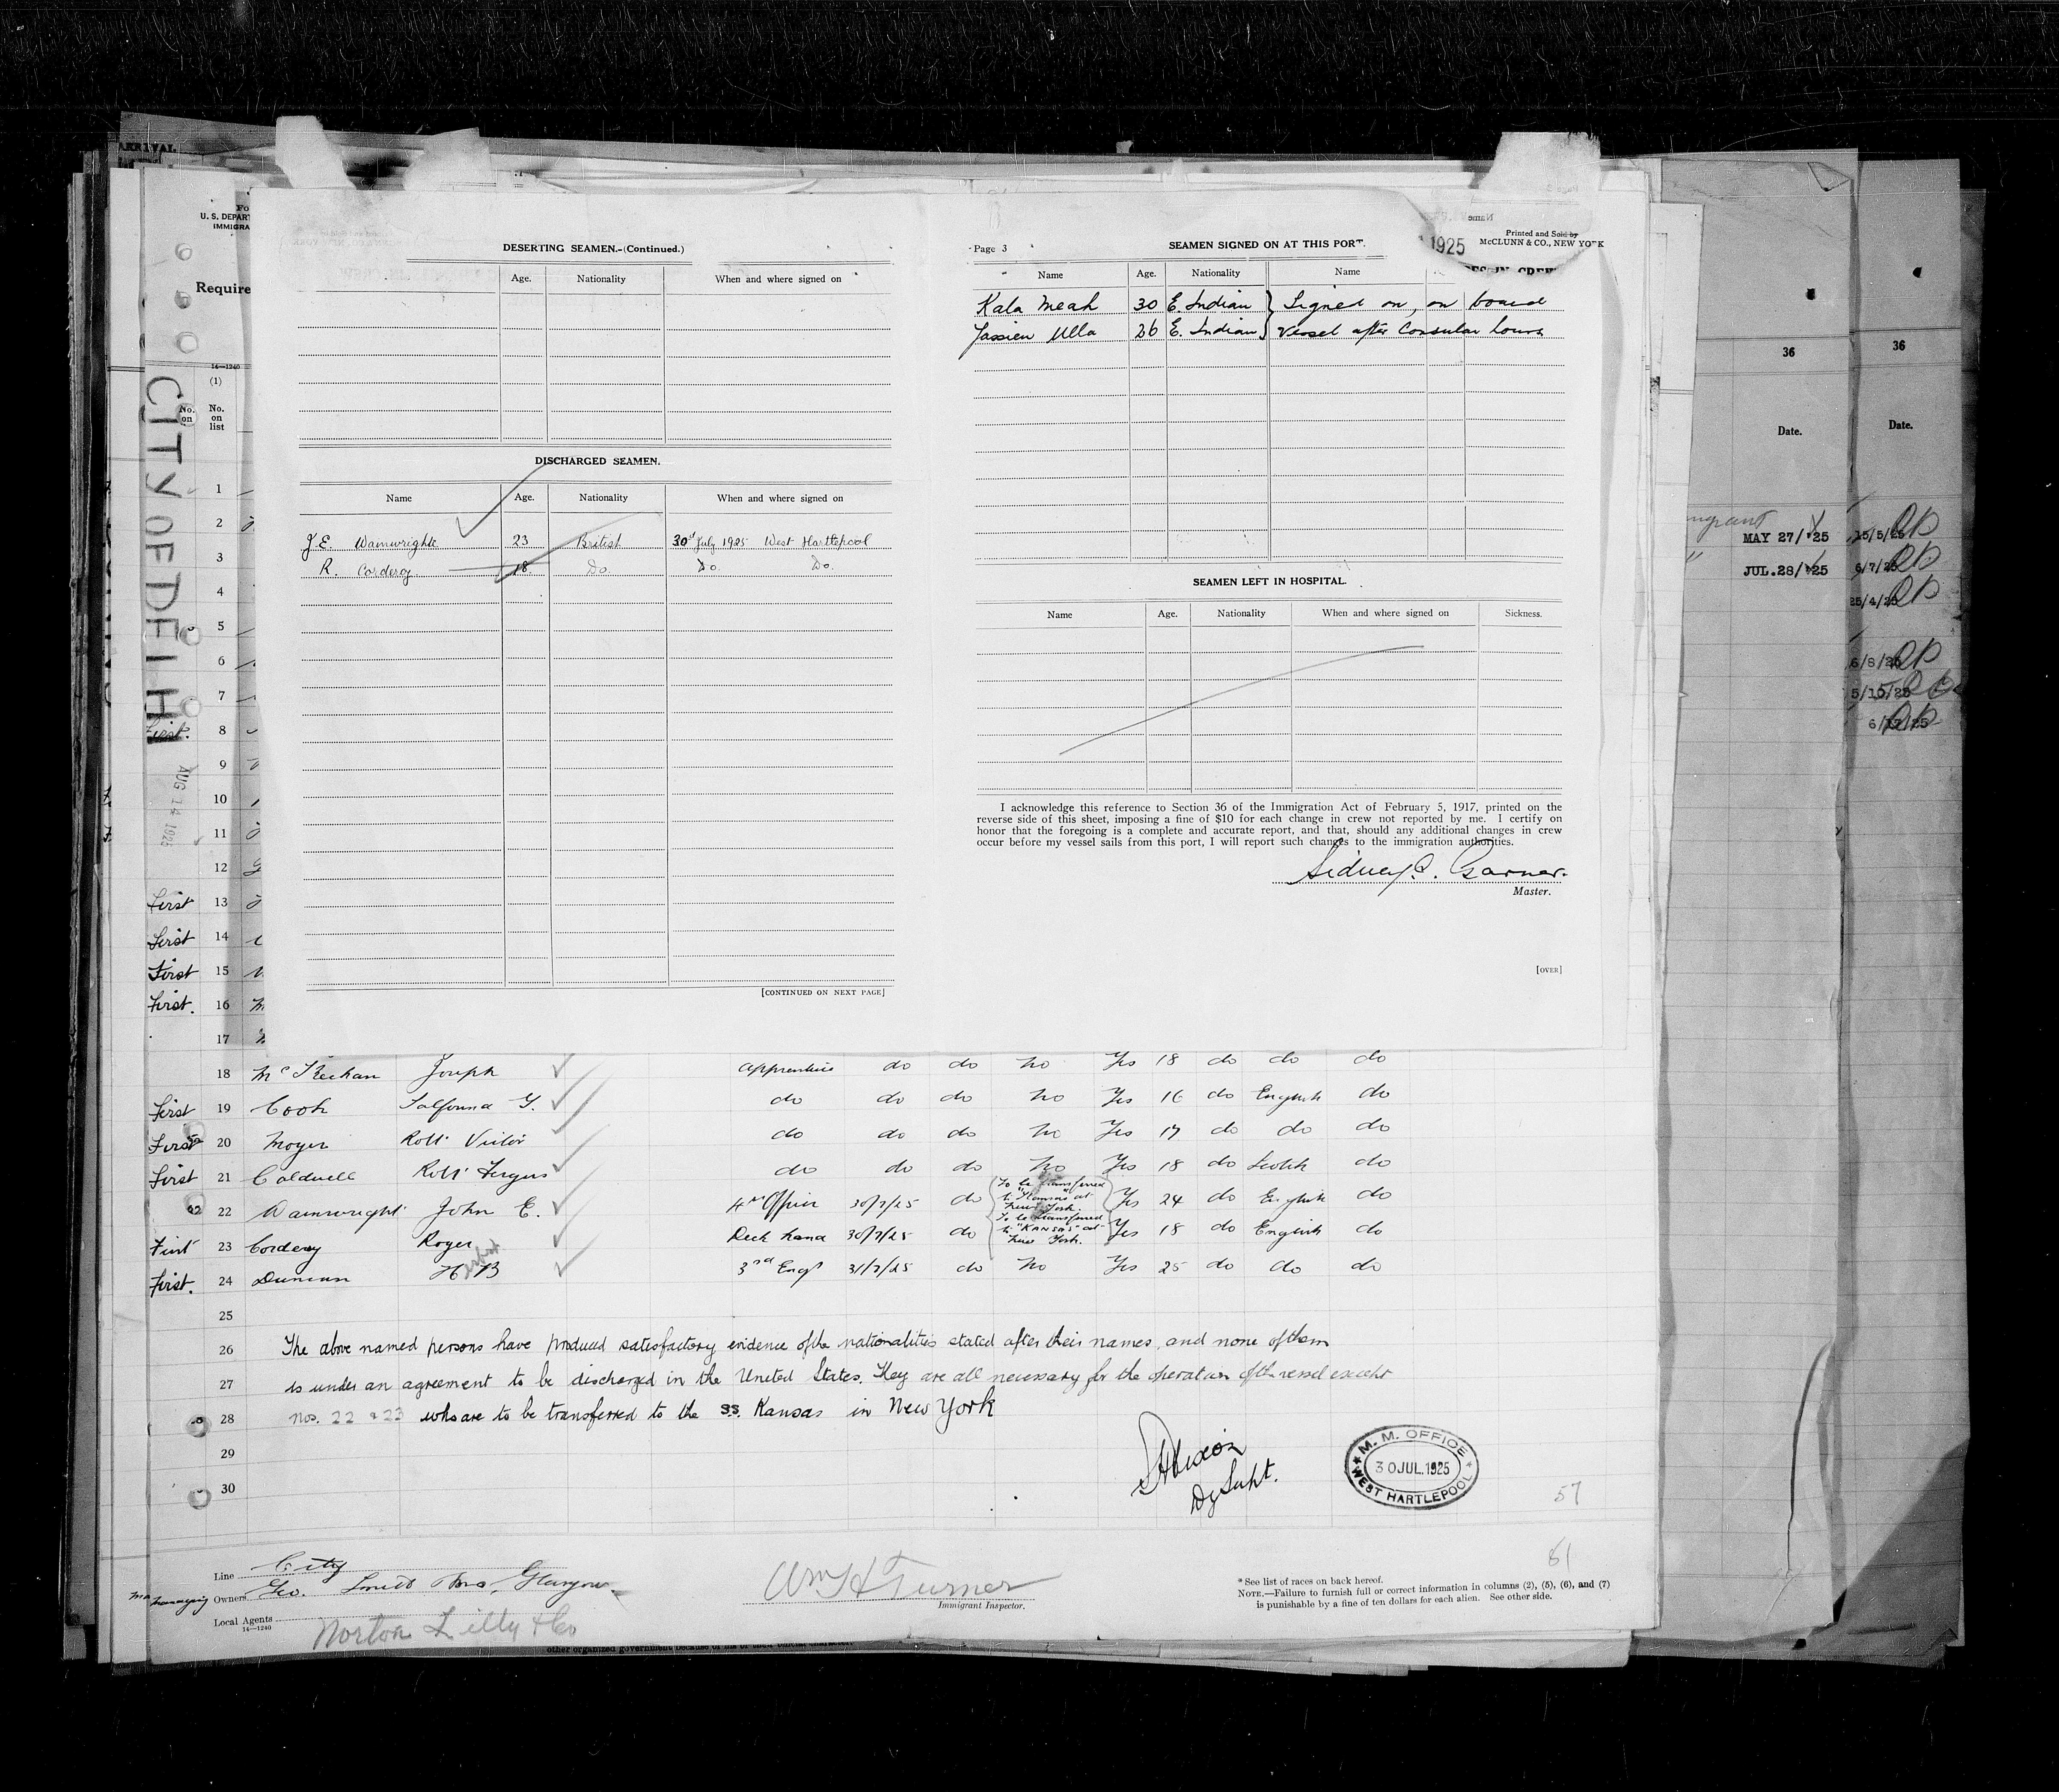 ARRIVAL
U. S. DEPART
IMMIGRA
Require
14-1240
(1)
No. on
No. on list
CITY OF DELHI
AUG 14 192
DESERTING SEAMEN.-(Continued.)
Age. Nationality When and where signed on
DISCHARGED SEAMEN.
Name Age. Nationality When and where signed on
J.E. Wainwright 23 British 30th July 1925 West Hartlepool
R. Corderoy 18 Do Do. Do.
[CONTINUED ON NEXT PAGE]
Page 3
SEAMEN SIGNED ON AT THIS PORT.
1925
Name
Printed and Sold by
McCLUNN & CO., NEW YORK
Name Age. Nationality Name
Kala Meah 30 E. Indian } Signed on, on board
Jassien Ulla 26 E. Indian } Vessel after Consular hours
SEAMEN LEFT IN HOSPITAL.
Name Age. Nationality When and where signed on Sickness.
I acknowledge this reference to Section 36 of the Immigration Act of February 5, 1917, printed on the
reverse side of this sheet, imposing a fine of $10 for each change in crew not reported by me. I certify on
honor that the foregoing is a complete and accurate report, and that, should any additional changes in crew
occur before my vessel sails from this port, I will report such changes to the immigration authorities.
Sidney C. Garner.
Master.
[OVER]
36
Date.
MAY 27/'25
JUL.28/'25
36
Date.
15/5/25
6/7/25
25/4/25
6/8/25
5/15/25
1
2
3
4
5
6
7
First. 8
9
10
11
12
First 13
First 14
First 15
First. 16
17
18 McKeehan Joseph apprentice do do No Yes 18 do do do
First 19 Cook do do do No Yes 16 do English do
First 20 Moyer Robt Victor do do do No Yes 17 do do do
First 21 Caldwell Robt Fergus do do do No Yes 18 do Scotch do
22 Wainwright John E. 4th Officer 30/7/25 do To be transferred to "Kansas" at New York. Yes 24 do English do
First 23 Corderoy Roger Deck hand 30/7/25 do To be transferred to "KANSAS" at New York. Yes 18 do English do
First. 24 Duncan H B 3rd Engr 31/7/25 do No Yes 25 do do do
25
26 The above named persons have produced satisfactory evidence of the nationalities stated after their names, and none of them
27 is under an agreement to be discharged in the United States. They are all necessary for the operation of the vessel except
28 Nos. 22 & 23 who are to be transferred to the S.S. Kansas in New York
29
30
Dixon
Dy Supt.
M. M. OFFICE
30 JUL. 1925
WEST HARTLEPOOL
57
61
Line City
Managing Owners Geo. Smith & Sons, Glasgow
Local Agents Norton Lilly & Co
14-1240
Wm H Turner
Immigrant Inspector.
* See list of races on back hereof.
NOTE.—Failure to furnish full or correct information in columns (2), (5), (6), and (7)
is punishable by a fine of ten dollars for each alien. See other side.